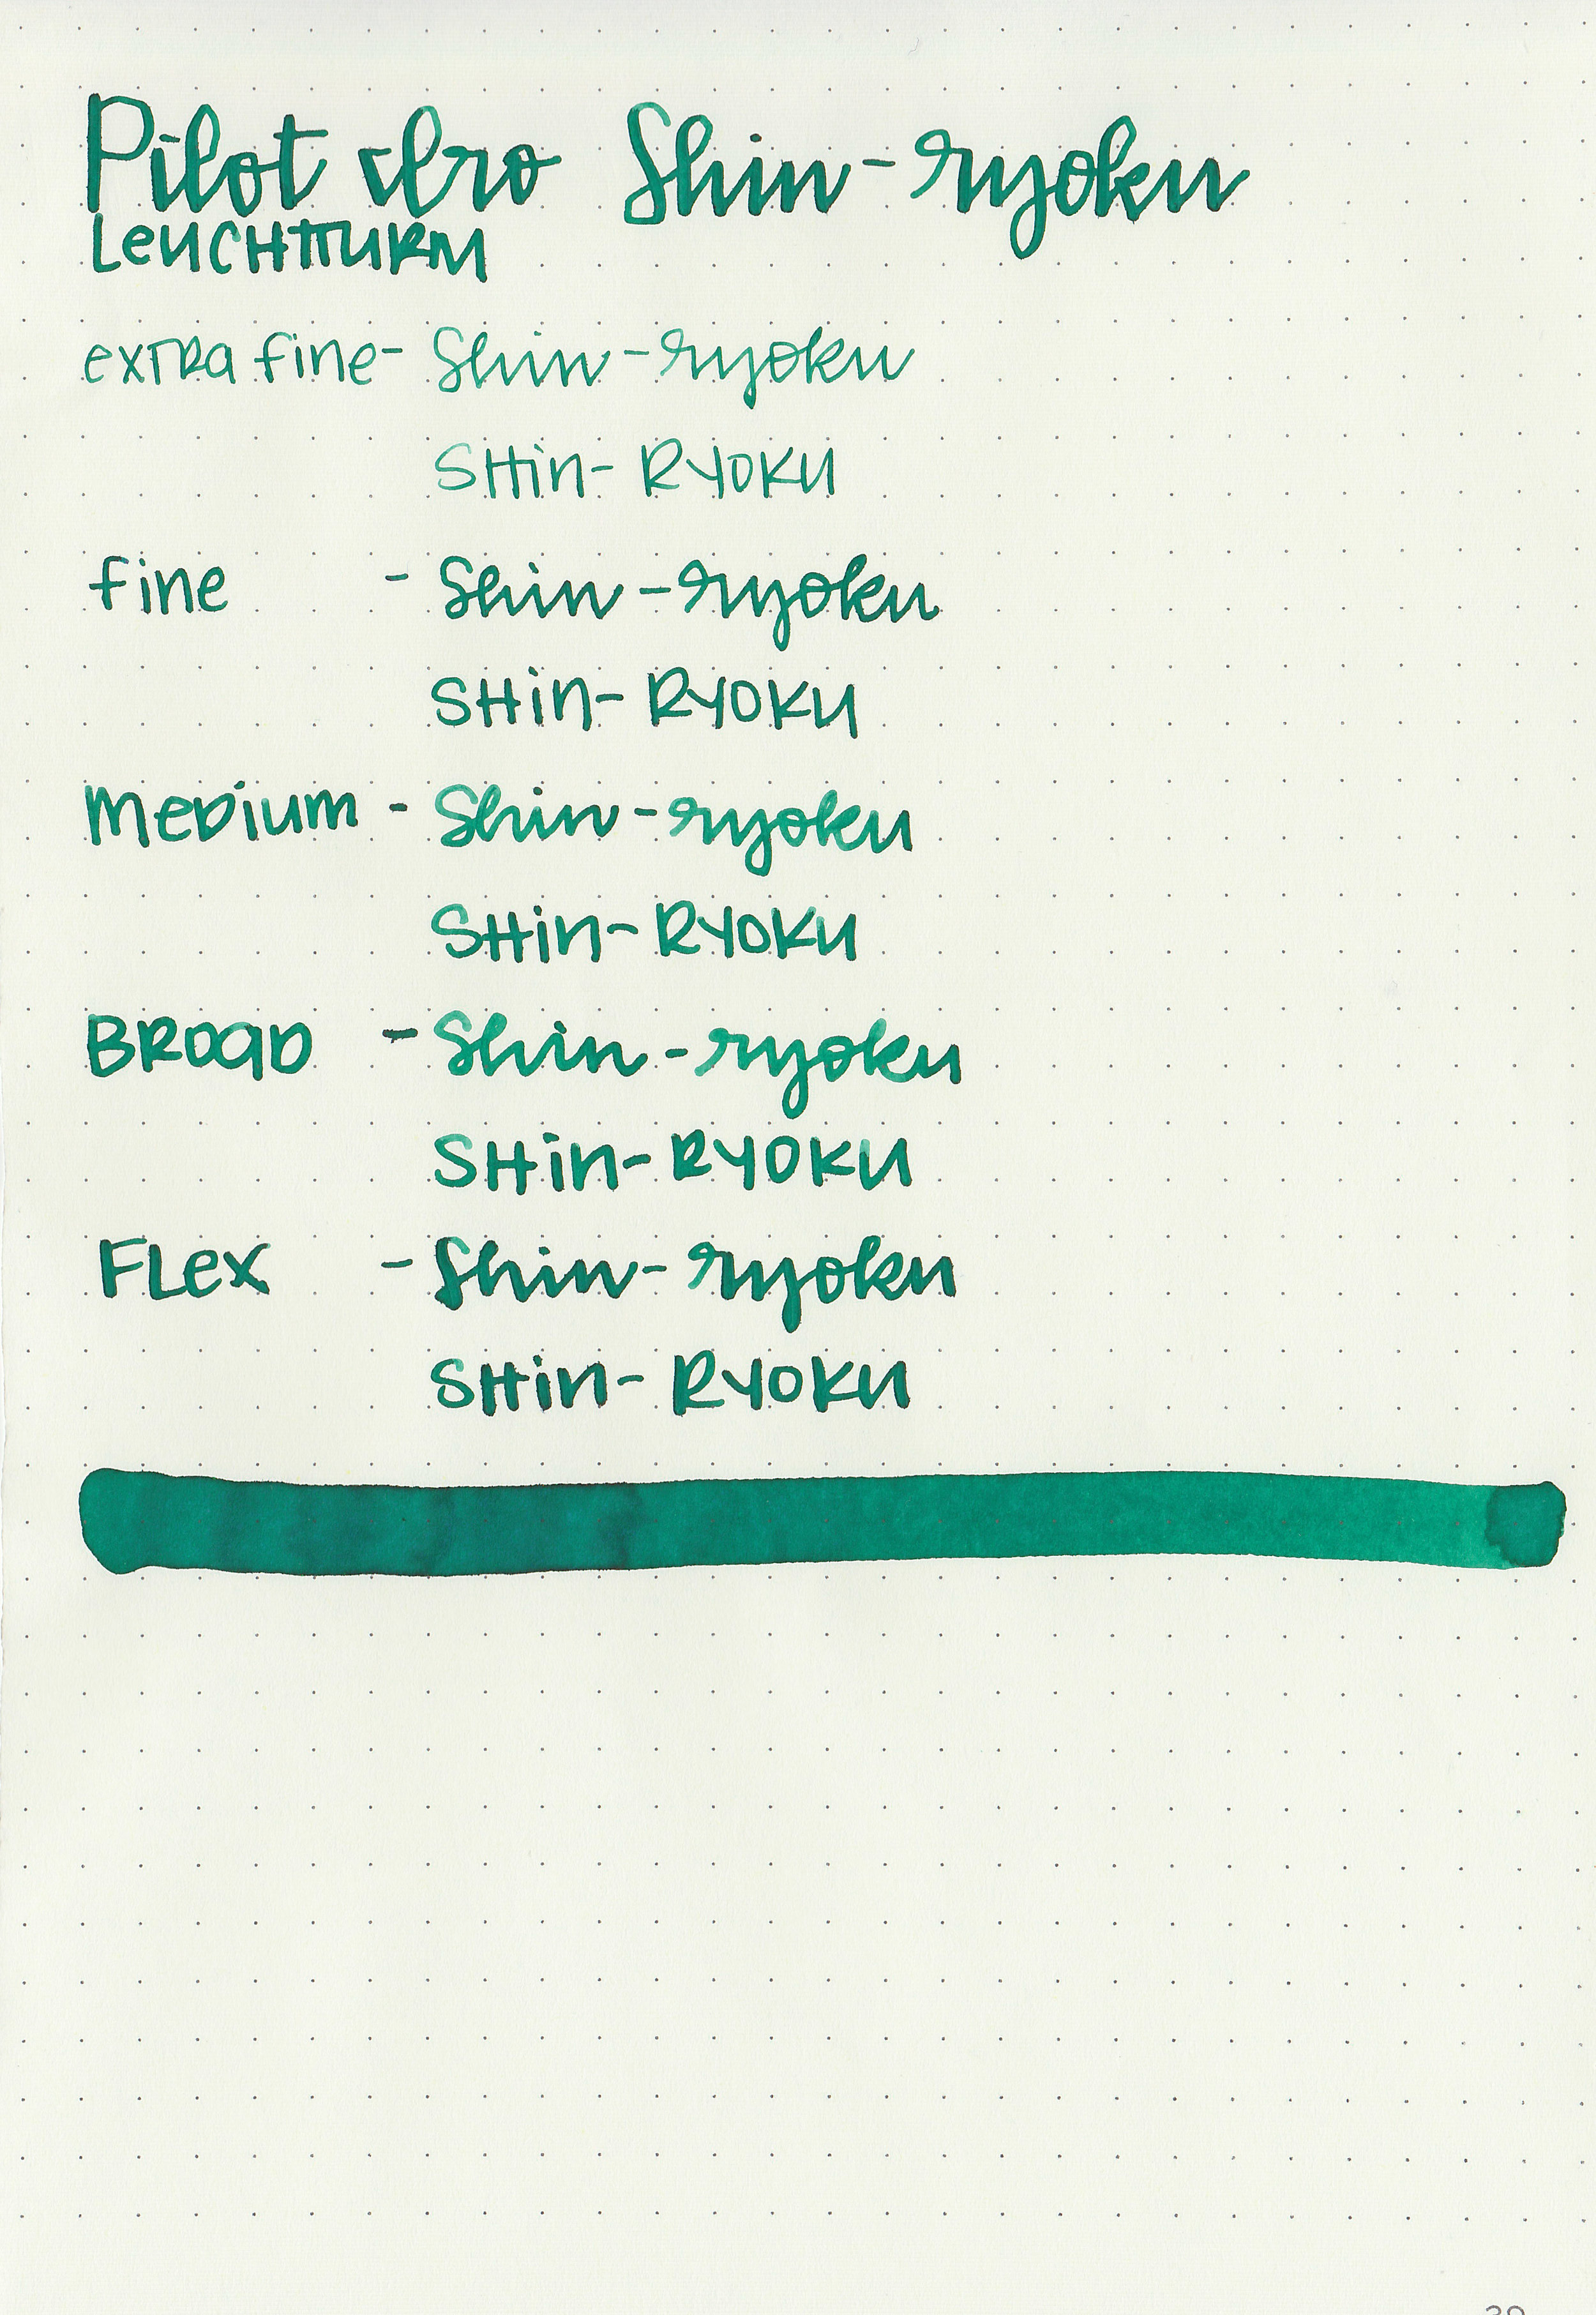 Pilot Iro Shin-ryoku
LEUCHTTURM
extra fine- Shin-ryoku
SHin-RYOKU
fine - Shin-ryoku
SHin-RYOKU
MEDium - Shin-ryoku
SHin-RYOKU
BROAD - Shin-ryoku
SHin-RYOKU
FLex - Shin-ryoku
SHin-RYOKU